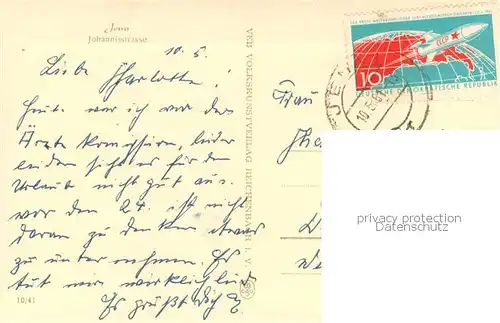 Jena
Johannisstrasse
10. 5.
Liebe Charlotte!
Heute war ich vor der
Ärzte Komission, leider
leider sieht es für den
Urlaube nicht gut aus.
vor den 24. ist nicht
daran zu denken etwas
zu unternehmen. Es
tut mir wirklich leid
Es grüßt Dich
10/41
VEB VOLKSKUNSTVERLAG REICHENBACH I. V.
Frau
10
CCCP
DEUTSCHE DEMOKRATISCHE REPUBLIK
JENA
privacy protection
Datenschutz